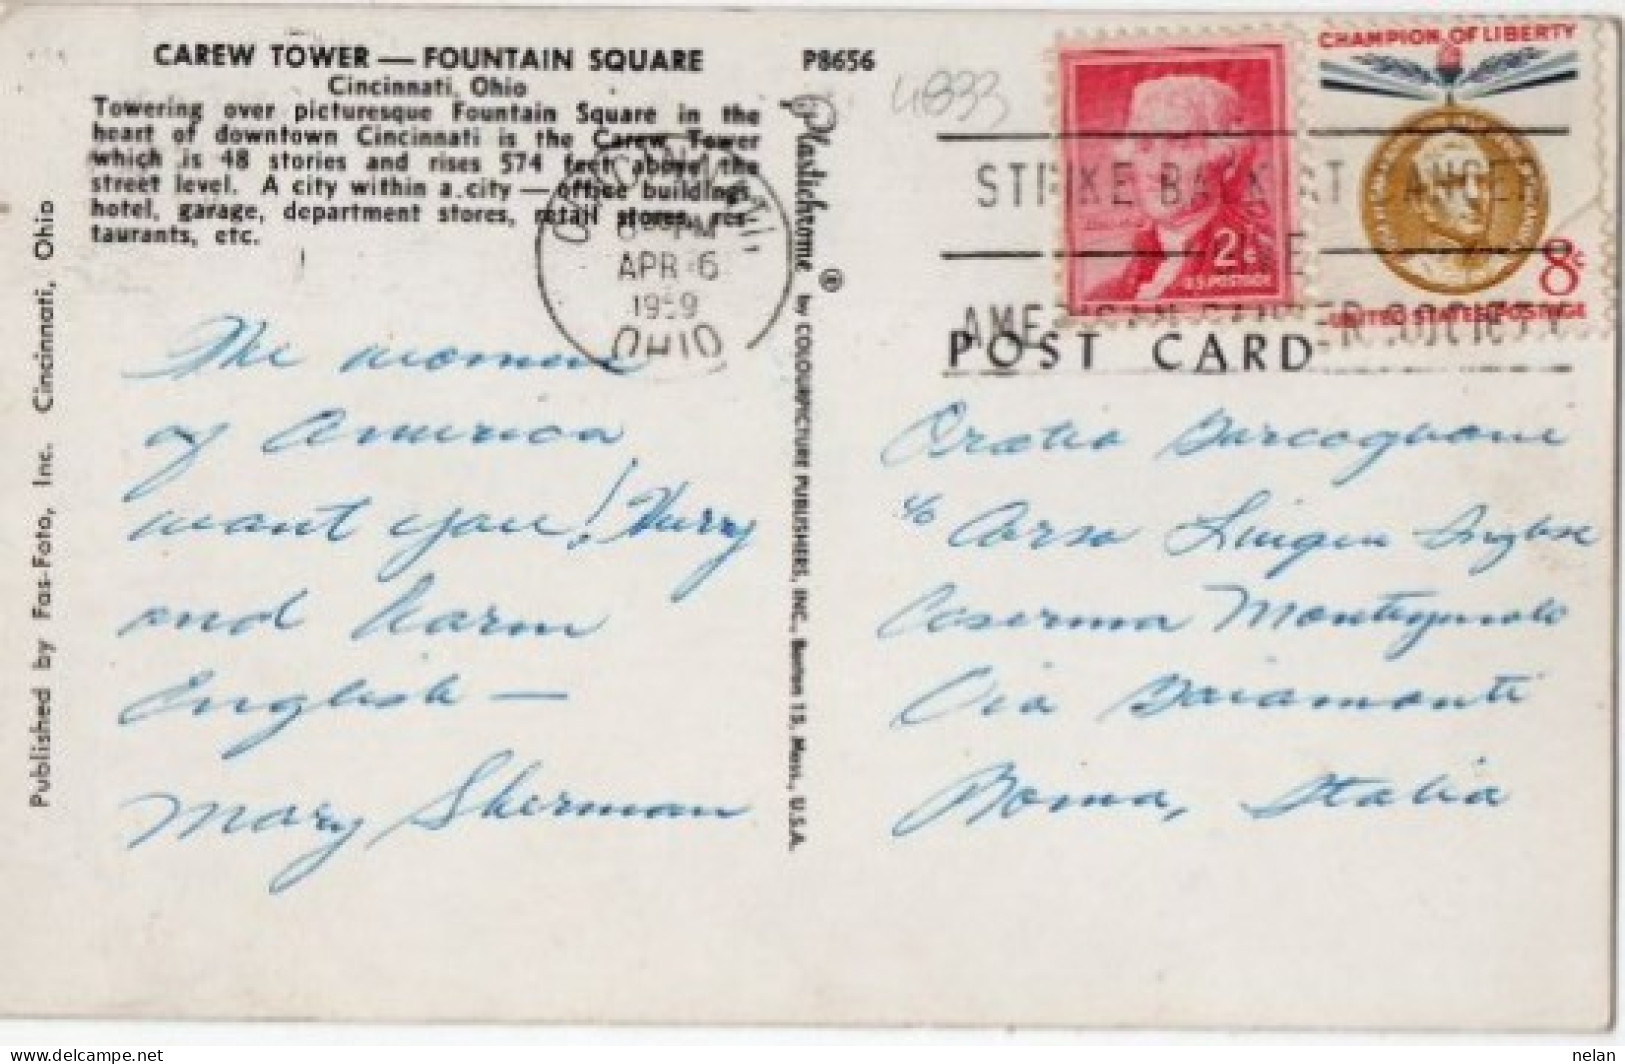 CAREW TOWER — FOUNTAIN SQUARE
Cincinnati, Ohio
Towering over picturesque Fountain Square in the
heart of downtown Cincinnati is the Carew Tower
which is 48 stories and rises 574 feet above the
street level. A city within a city — office buildings,
hotel, garage, department stores, retail stores, res-
taurants, etc.
P8656
4833
Published by Fas-Foto, Inc. Cincinnati, Ohio
Plastichrome ® by COLOURPICTURE PUBLISHERS, INC., Boston 15, Mass., U.S.A.
CINCINNATI
PM
APR 6
1959
OHIO
STRIKE BACK AT CANCER
AMERICAN CANCER SOCIETY
2¢
U.S. POSTAGE
CHAMPION OF LIBERTY
8¢
UNITED STATES POSTAGE
POST CARD
The women
of America
want you! Hurry
and learn
English —
Mary Sherman
Oratio
c/o Corso Lingua Inglese
Caserma
Via
Roma, Italia
nelan